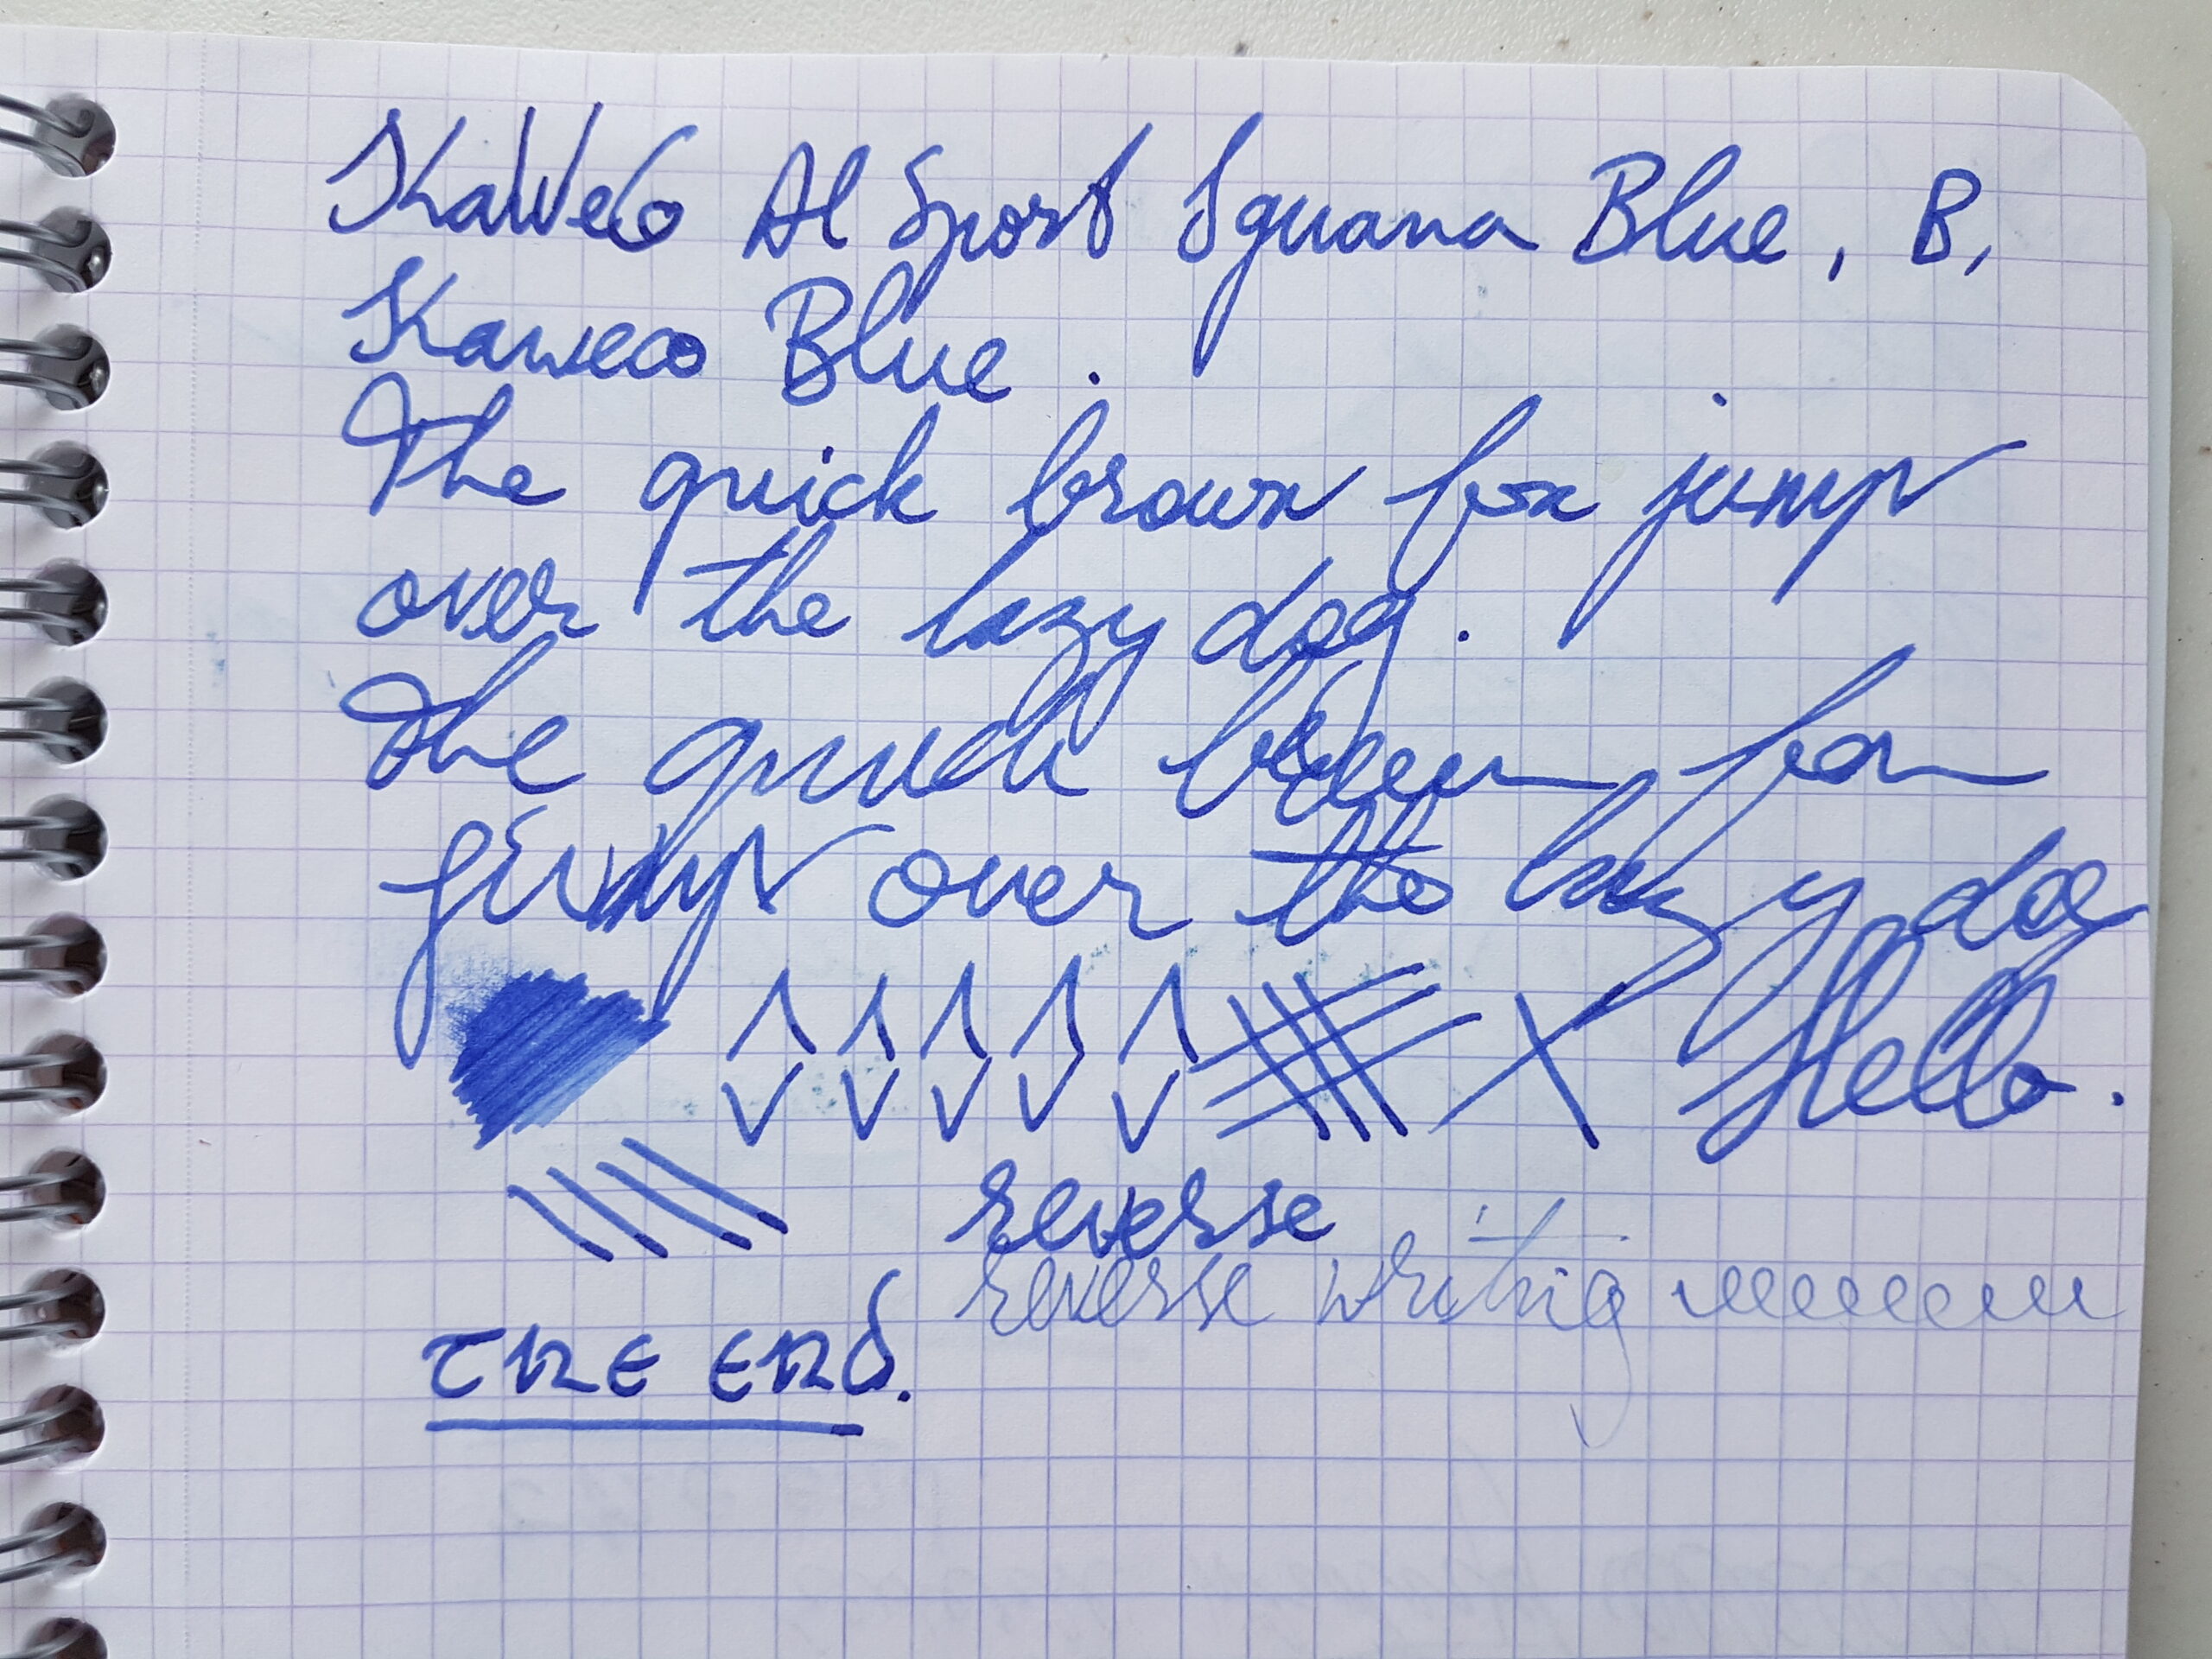 KaWeCo Al Sport Iguana Blue, B,
Kaweco Blue.
The quick brown fox jump
over the lazy dog.
The quick brown fox
jump over the lazy dog
Hello.
reverse
reverse writing eeeeeeee
THE END.